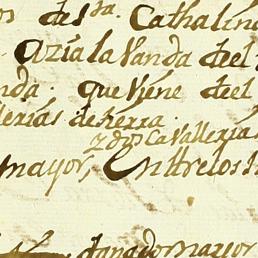 os de sta. Cathalina
azia la vanda deel
nda. que viene deel
llerias de tierra.
y dos Cavallerias
mayor, Entre los
ganado mayor